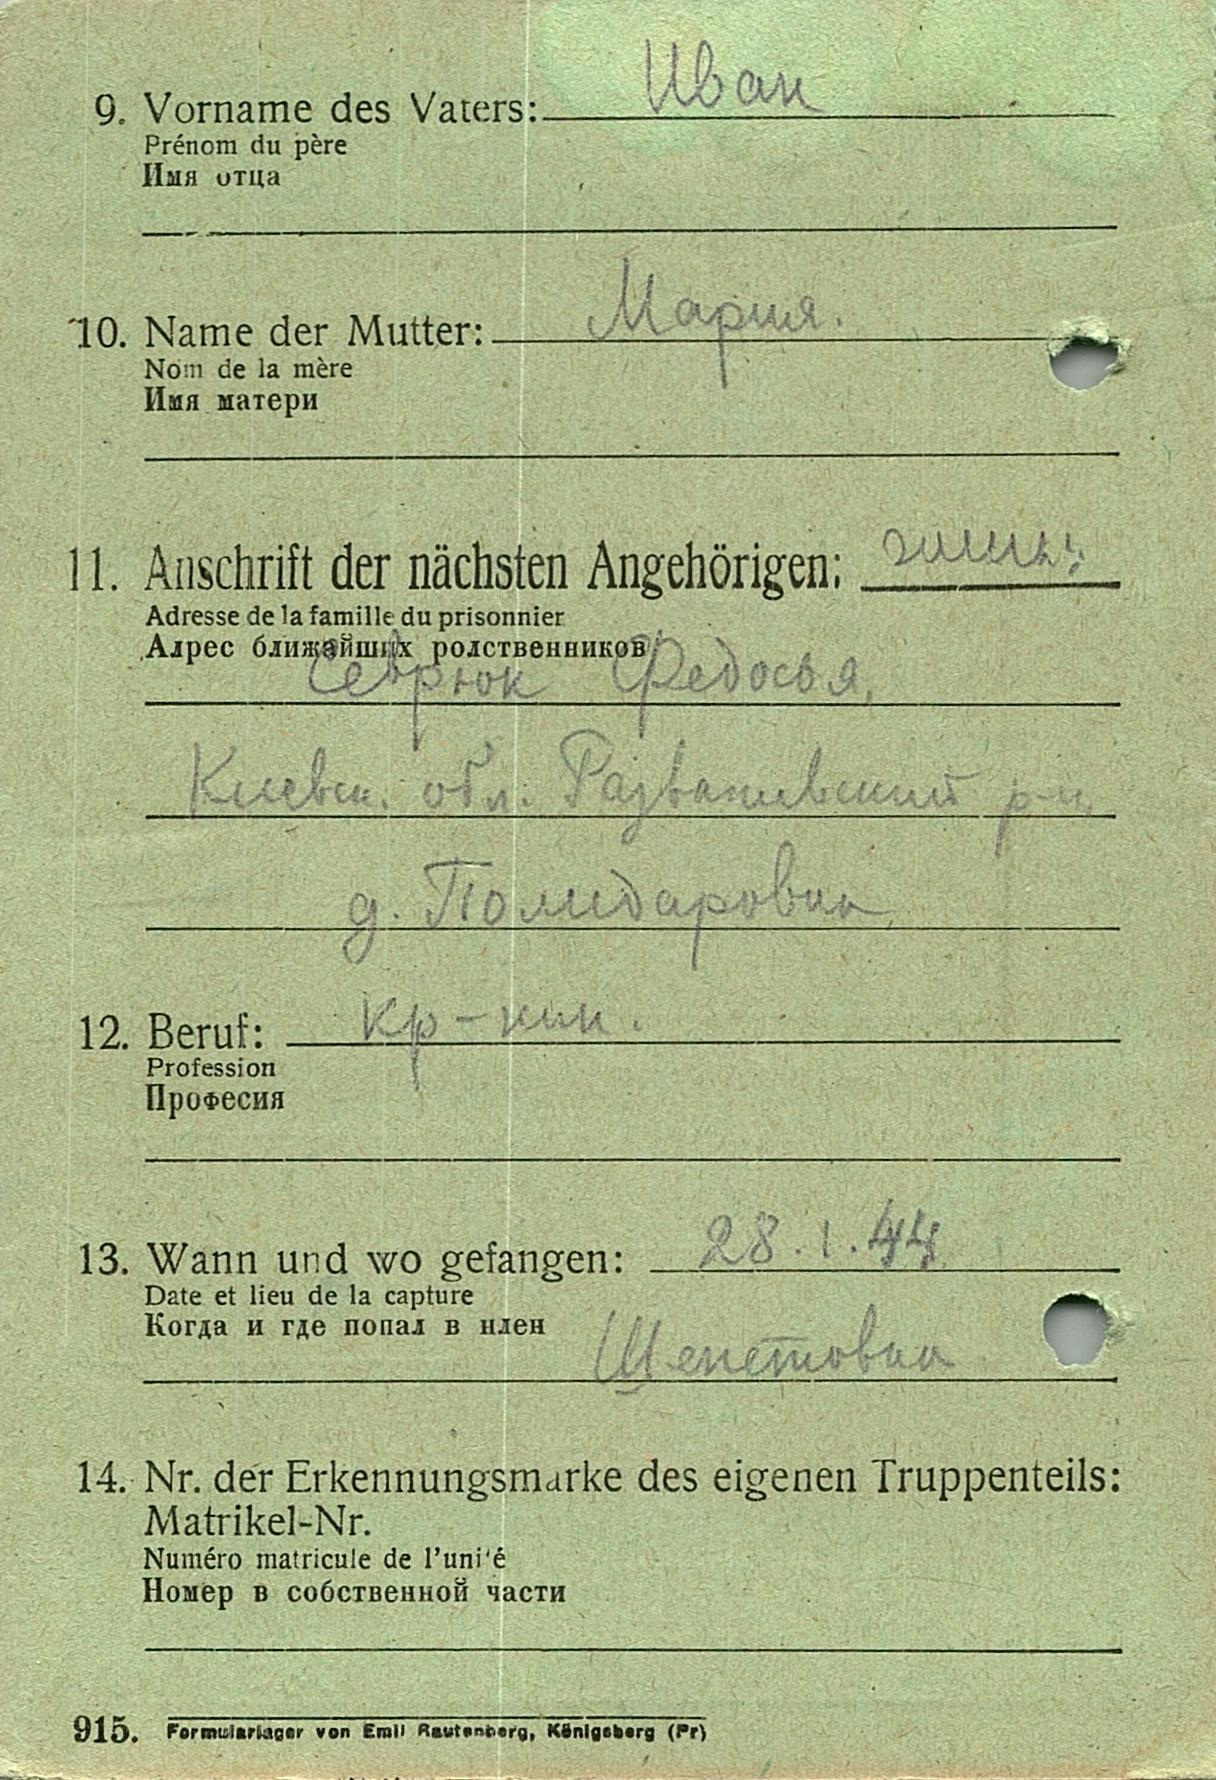 9. Vorname des Vaters: Иван
Prénom du père
Имя отца
10. Name der Mutter: Мария.
Nom de la mère
Имя матери
11. Anschrift der nächsten Angehörigen:
Adresse de la famille du prisonnier
Адрес ближайших родственников
Севрюк Федосья,
Киевск. обл. Розваживский р-н,
д. Полидаровка
12. Beruf: кр-нин.
Profession
Професия
13. Wann und wo gefangen: 28.1.44
Date et lieu de la capture
Когда и где попал в плен
Шепетовка
14. Nr. der Erkennungsmarke des eigenen Truppenteils:
Matrikel-Nr.
Numéro matricule de l'unité
Номер в собственной части
915. Formularlager von Emil Rautenberg, Königsberg (Pr)